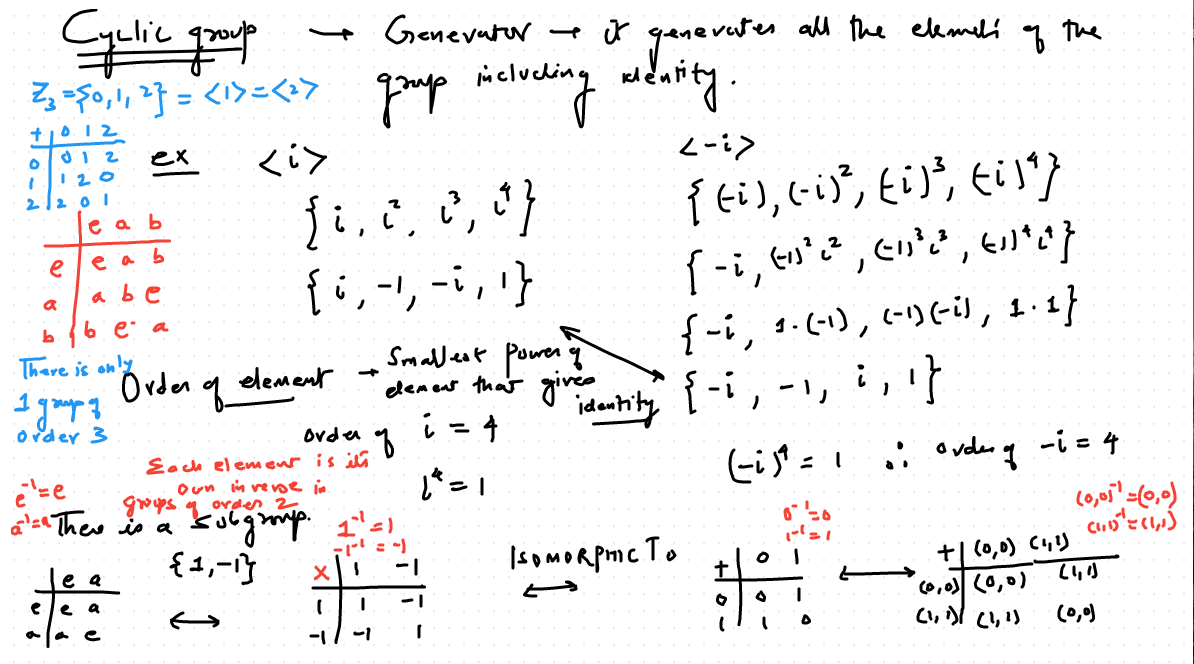 Cyclic group → Generator → it generates all the elements of the
group including identity.
Z₃ = {0, 1, 2} = <1> = <2>
+ | 0 1 2
0 | 0 1 2
1 | 1 2 0
2 | 2 0 1
ex <i>
{i, i², i³, i⁴}
{i, -1, -i, 1}
<-i>
{(-i), (-i)², (-i)³, (-i)⁴}
{-i, (-1)² i², (-1)³ i³, (-1)⁴ i⁴}
{-i, 1·(-1), (-1)(-i), 1·1}
{-i, -1, i, 1}
| e a b
e | e a b
a | a b e
b | b e a
There is only
1 group of
order 3
Order of element → Smallest power of
element that gives
identity
order of i = 4
i⁴ = 1
(-i)⁴ = 1 ∴ order of -i = 4
Each element is its
own inverse in
groups of order 2
e⁻¹=e
a⁻¹=a
There is a subgroup.
{1, -1}
| e a
e | e a
a | a e
↔
1⁻¹=1
-1⁻¹=-1
× | 1 -1
1 | 1 -1
-1 | -1 1
ISOMORPHIC TO
↔
0⁻¹=0
1⁻¹=1
+ | 0 1
0 | 0 1
1 | 1 0
↔
(0,0)⁻¹=(0,0)
(1,1)⁻¹=(1,1)
+ | (0,0) (1,1)
(0,0) | (0,0) (1,1)
(1,1) | (1,1) (0,0)